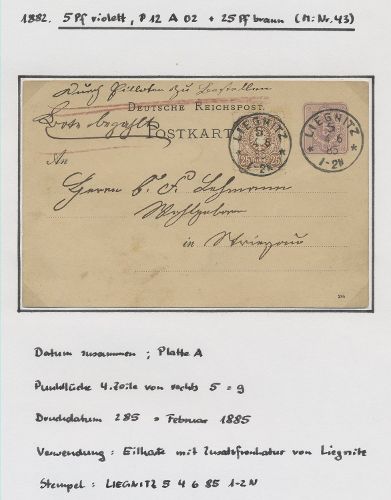 1882. 5Pf violett, P12 A 02 + 25Pf braun (Mi:Nr.43)
Durch Eilboten zu bestellen
DEUTSCHE REICHSPOST.
Bote bezahlt
POSTKARTE
LIEGNITZ
5
6
1-2N
25 25
LIEGNITZ
5
6
85
1-2N
An
Herrn C. F. Lehmann
Wohlgeboren
in Striegau
285
Datum zusammen ; Platte A
Punktlücke 4. Zeile von rechts 5 = 9
Druckdatum 285 = Februar 1885
Verwendung : Eilkarte mit Zusatzfrankatur von Liegnitz
Stempel : LIEGNITZ 5 4 6 85 1-2N